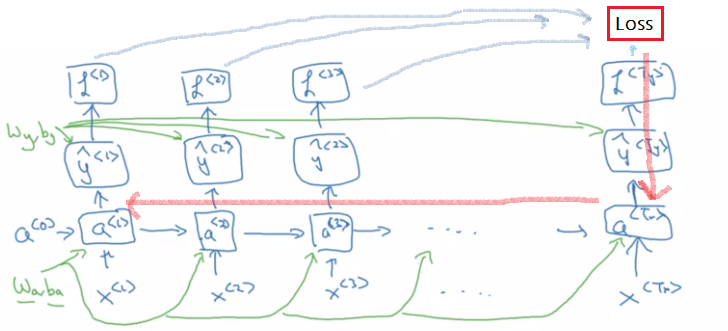 Loss
ℒ^<1> ℒ^<2> ℒ^<3> ℒ^<Ty>
Wy, by
ŷ^<1> ŷ^<2> ŷ^<3> ŷ^<Ty>
a^<0> a^<1> a^<2> a^<3> .... a^<Tx>
Wa, ba
x^<1> x^<2> x^<3> ..... x^<Tx>